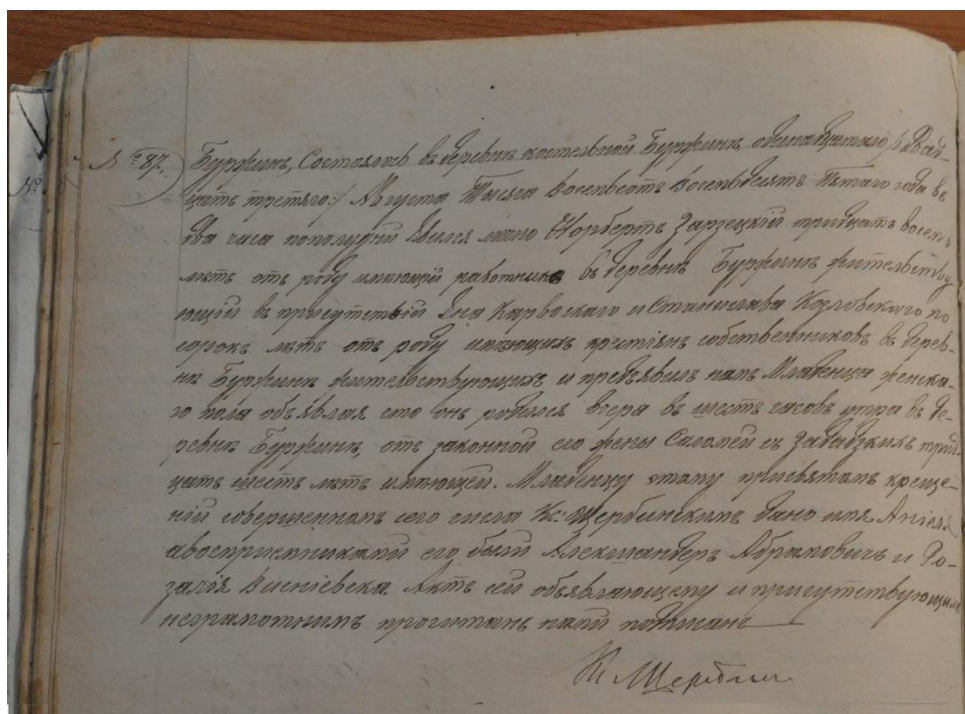 № 87.
Буржинъ, Состоялось въ деревнѣ костельной Буржинъ одинадцатаго /:двад-
цать третяго:/ Августа Тысяча восемьсотъ восемьдесятъ Пятаго года въ
два часа пополудни Явился лично Норбертъ Зарзецкій тридцать восемь
лѣтъ отъ роду имѣющій работникъ въ деревнѣ Буржинѣ жительству
ющій въ присутствіи Яна Карвоскаго и Станислава Козловскаго по
сорокъ лѣтъ отъ роду имѣющихъ крестьянъ собственниковъ въ дерев-
нѣ Буржинѣ жительствующихъ и предъявилъ намъ Младенца женска-
го пола объявляя что онъ родился вчера въ шесть часовъ утра въ де-
ревнѣ Буржинѣ, отъ законной его жены Саломеи съ Завадзкихъ трид-
цать шесть лѣтъ имѣющей. Младенцу этому присвятомъ креще-
ніи совершенномъ сего числа Кс: Щербинскимъ дано имя Aniela
авоспріемниками его были Александеръ Абрамовичъ и Ро-
залія Висніевска. Актъ сей объявляющему и присутствующимъ
неграмотнымъ прочитанъ нами подписанъ
Кс Щербин